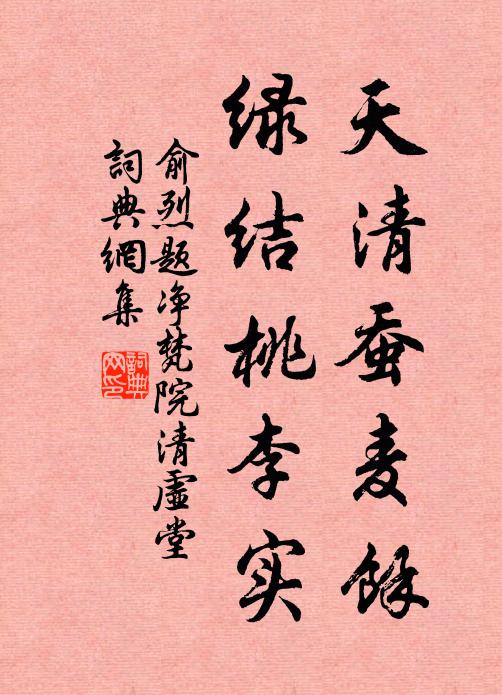 天清蚕麦馀
绿结桃李实
俞烈题净梵院清虚堂
詞典網集
詞典网印